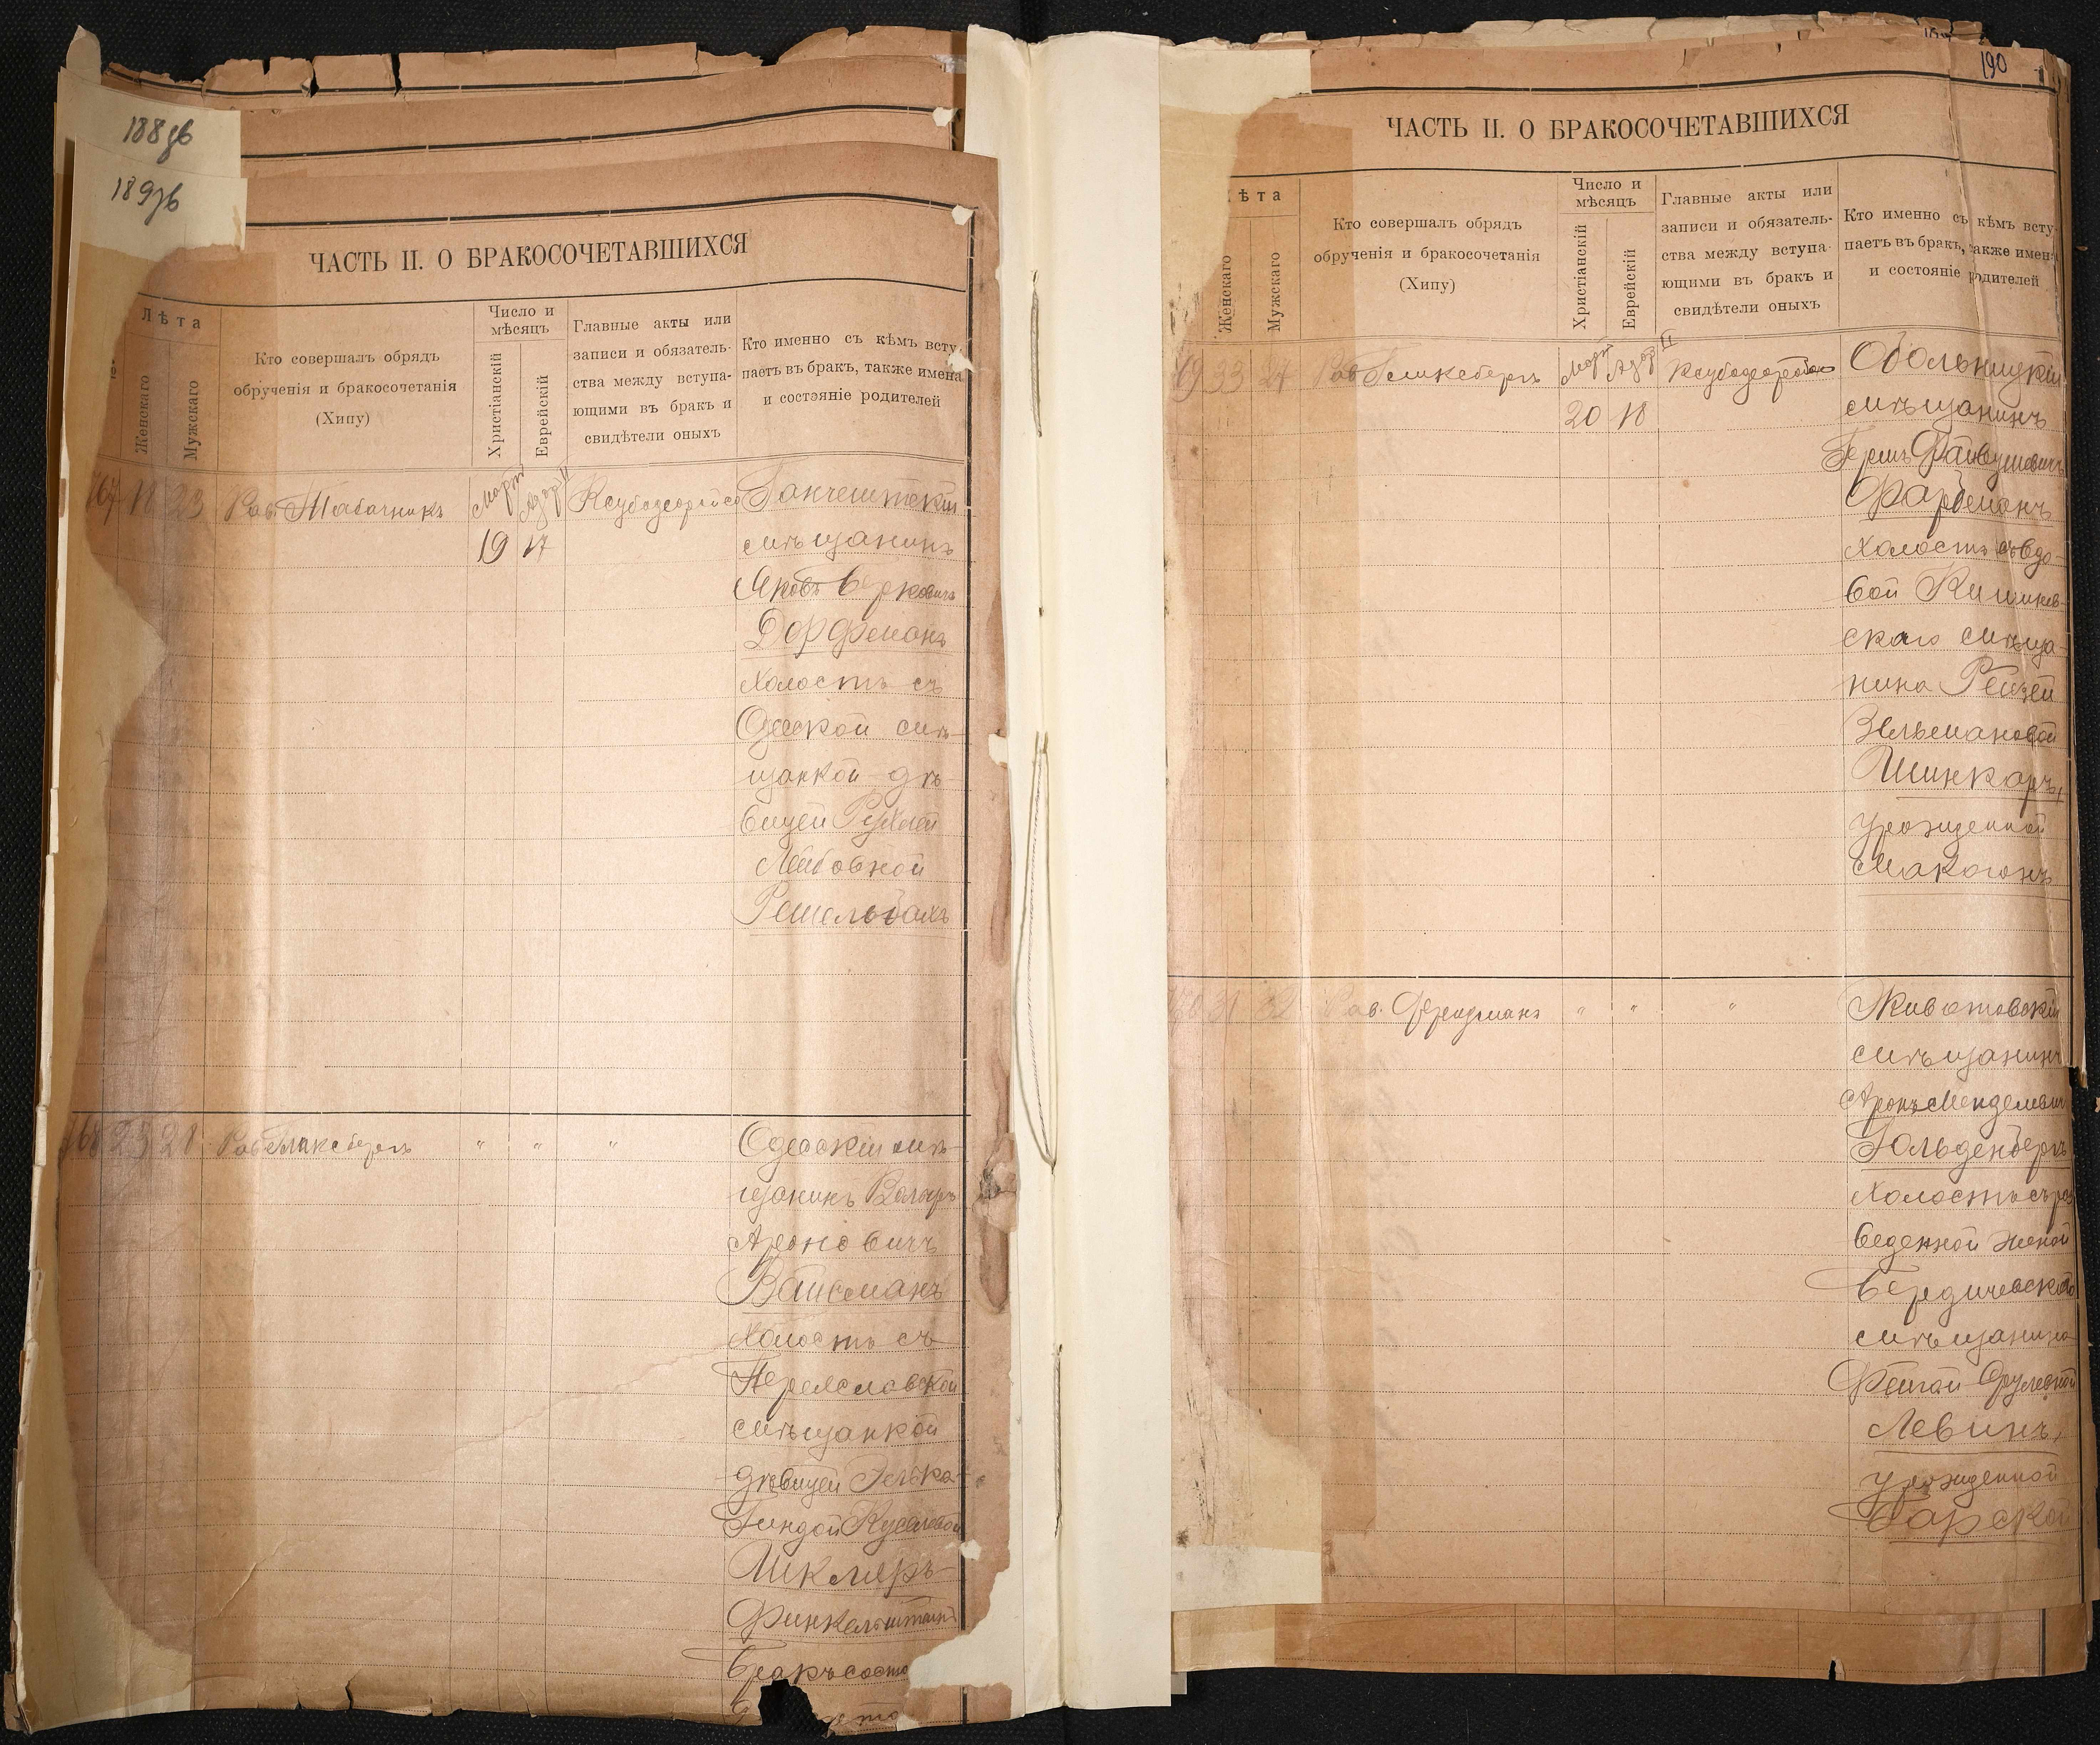 188 зв
189 зв
ЧАСТЬ II. О БРАКОСОЧЕТАВШИХСЯ
Лѣта
Женскаго
Мужскаго
Кто совершалъ обрядъ
обрученія и бракосочетанія
(Хипу)
Число и
мѣсяцъ
Христіанскій
Еврейскій
Главные акты или
записи и обязатель-
ства между вступа-
ющими въ бракъ и
свидѣтели оныхъ
Кто именно съ кѣмъ всту-
паетъ въ бракъ, также имена
и состояніе родителей
167 18 23 Рав. Табачникъ Март Адар II
19 17
Ганчештскій
мѣщанинъ
Яковъ Берковичъ
Дорфманъ
холостъ съ
Одесской мѣ-
щанкой дѣ-
вицей Рухлей
Лейбовной
168 23 28 Рав. Гликсбергъ " " "
Одесскій мѣ-
щанинъ
Ароновичъ
Вайсманъ
холостъ съ
Переяславской
мѣщанкой
дѣвицей
Гиндой
Шкляръ-
Финкельштейнъ
190
ЧАСТЬ II. О БРАКОСОЧЕТАВШИХСЯ
ѣта
Женскаго
Мужскаго
Кто совершалъ обрядъ
обрученія и бракосочетанія
(Хипу)
Число и
мѣсяцъ
Христіанскій
Еврейскій
Главные акты или
записи и обязатель-
ства между вступа-
ющими въ бракъ и
свидѣтели оныхъ
Кто именно съ кѣмъ всту-
паетъ въ бракъ, также имен
и состояніе родителей
69 33 24 Рав. Гликсбергъ Март Адар II
20 18
мѣщанинъ
Гершъ Файвушевичъ
Фарбманъ
холостъ съ вдо-
вой Кишинев-
скаго мѣща-
нина Рейзей
Зельмановой
Шинкаръ,
урожденной
Макогонъ
170 31 32 Рав. Фридманъ " " "
Животовскій
мѣщанинъ
Аронъ Менделевич
Гольденбергъ
холостъ съ раз
веденной женой
Бердичевскаго
мѣщанина
Фейгой Срулевной
Левинъ,
урожденной
Барской